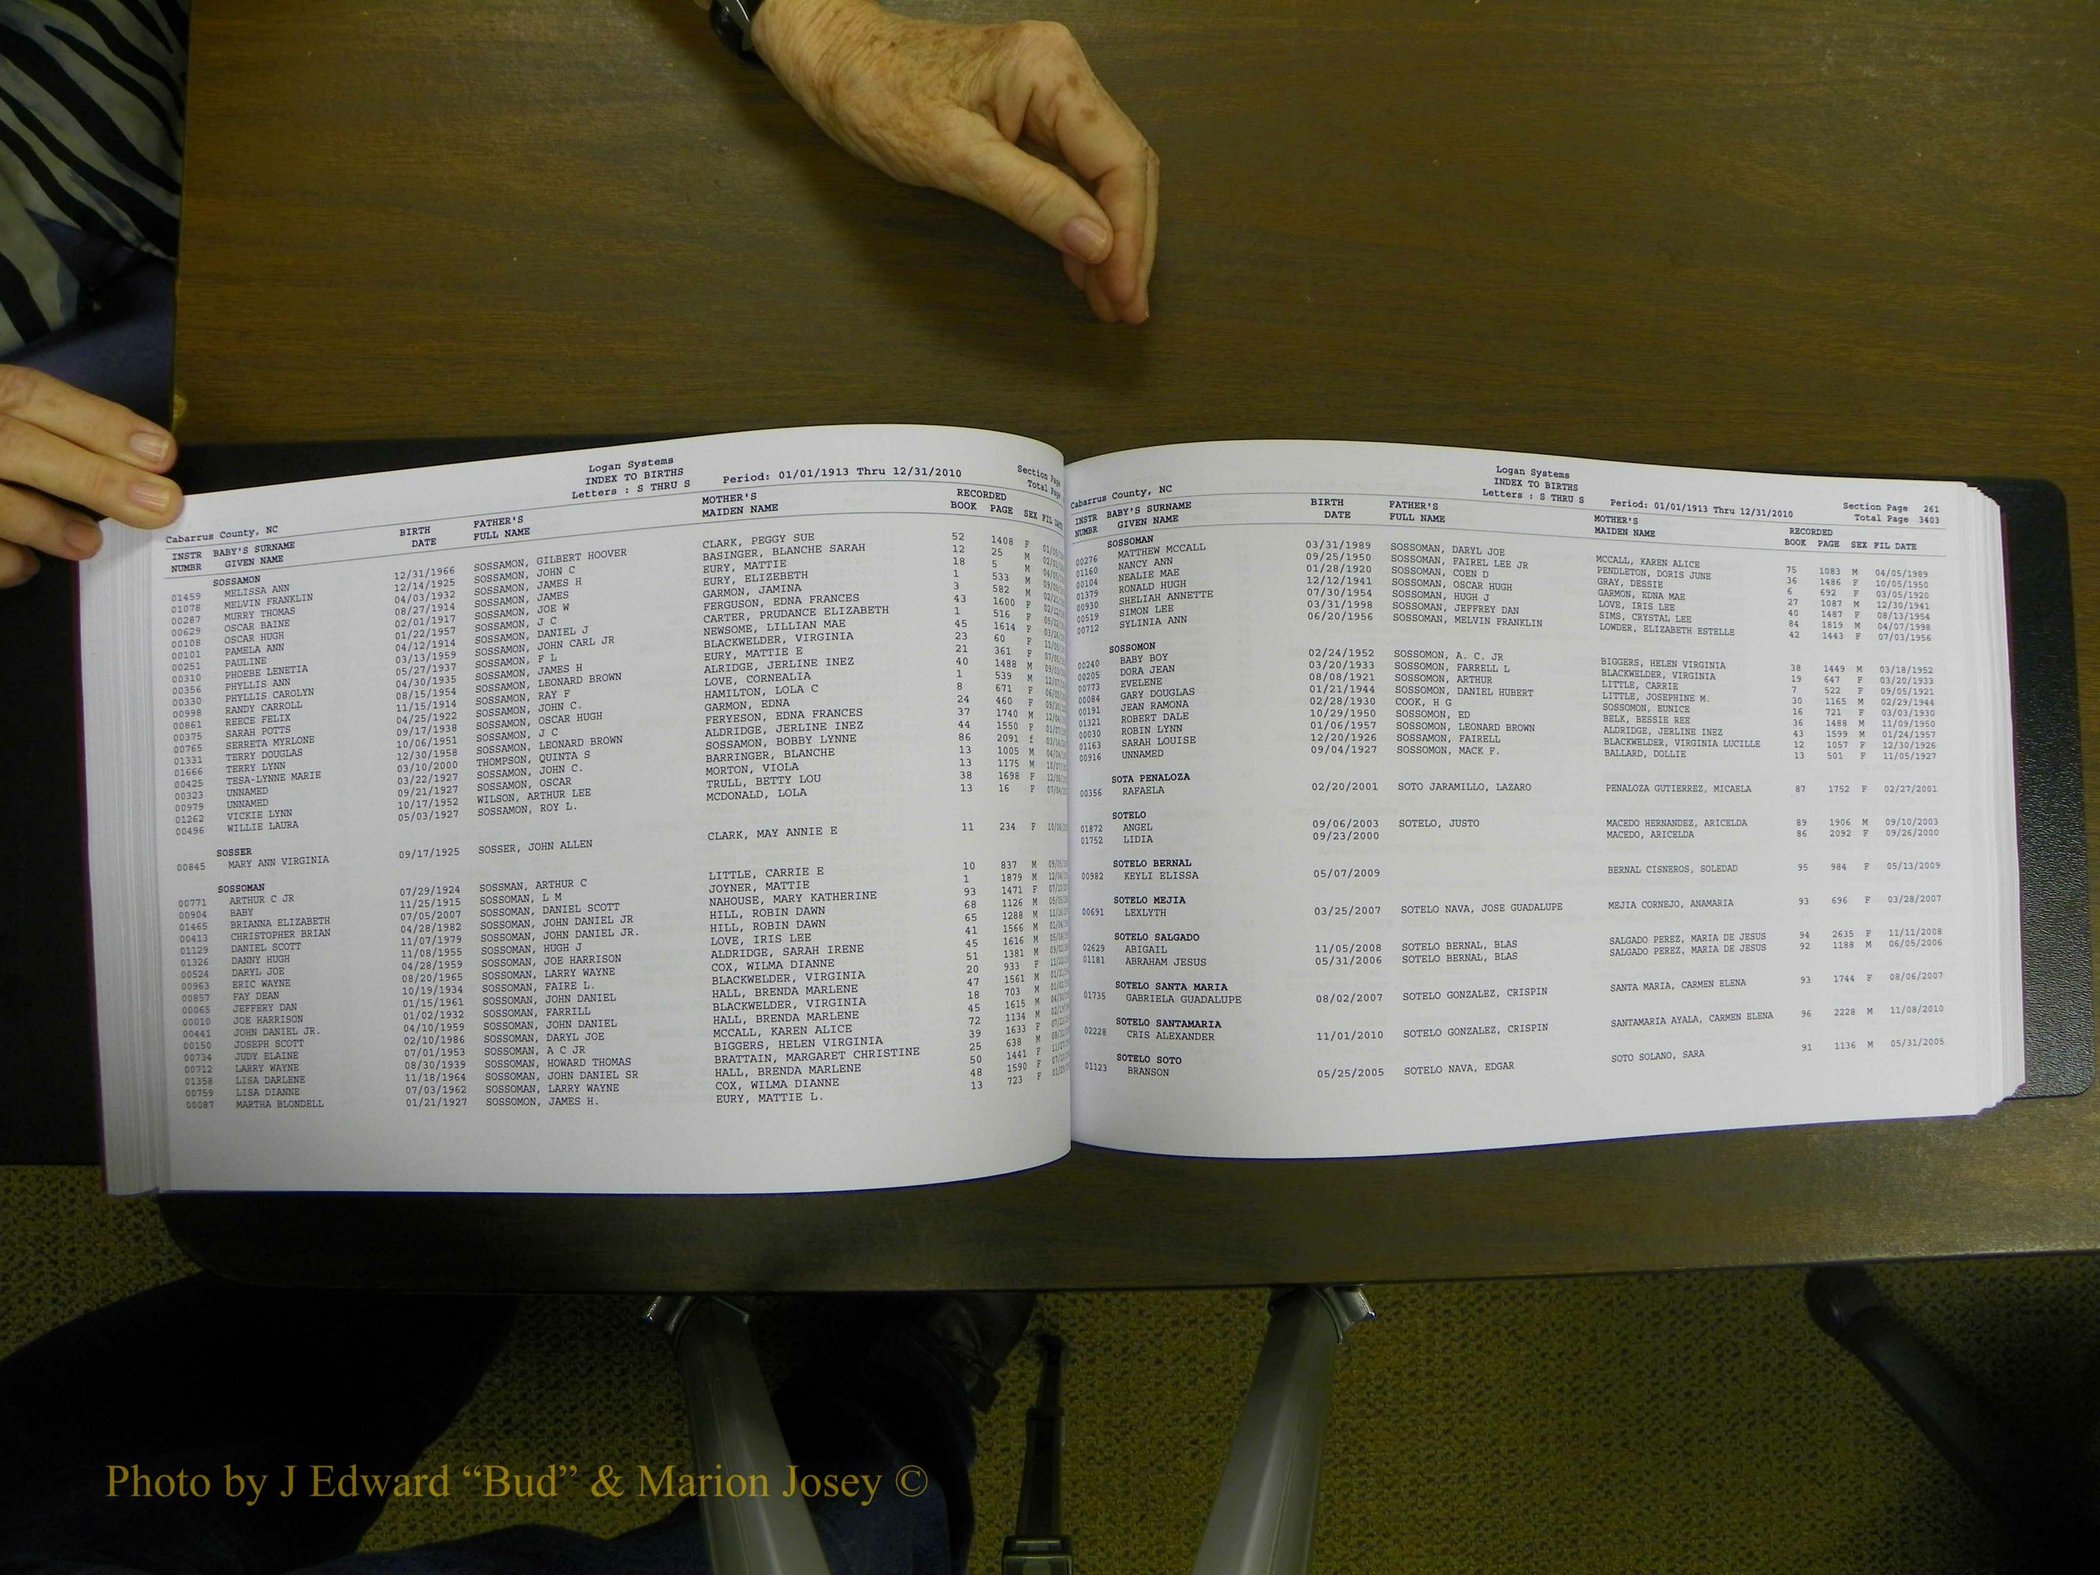 Logan Systems
INDEX TO BIRTHS
Cabarrus County, NC Letters : S THRU S Period: 01/01/1913 Thru 12/31/2010 Section Page
Total Page
INSTR BABY'S SURNAME BIRTH FATHER'S MOTHER'S RECORDED
NUMBR GIVEN NAME DATE FULL NAME MAIDEN NAME BOOK PAGE SEX FIL DATE
SOSSAMON
01459 MELISSA ANN 12/31/1966 SOSSAMON, GILBERT HOOVER CLARK, PEGGY SUE 52 1408 F
01078 MELVIN FRANKLIN 12/14/1925 SOSSAMON, JOHN C BASINGER, BLANCHE SARAH 12 25 M
00287 MURRY THOMAS 04/03/1932 SOSSAMON, JAMES H EURY, MATTIE 18 5 M
00629 OSCAR BAINE 08/27/1914 SOSSAMON, JAMES EURY, ELIZEBETH 1 533 M
00108 OSCAR HUGH 02/01/1917 SOSSAMON, JOE W GARMON, JAMINA 3 582 M
00101 PAMELA ANN 01/22/1957 SOSSAMON, J C FERGUSON, EDNA FRANCES 43 1600 F
00251 PAULINE 04/12/1914 SOSSAMON, DANIEL J CARTER, PRUDANCE ELIZABETH 1 516 F
00310 PHOEBE LENETIA 03/13/1959 SOSSAMON, JOHN CARL JR NEWSOME, LILLIAN MAE 45 1614 F
00356 PHYLLIS ANN 05/27/1937 SOSSAMON, F L BLACKWELDER, VIRGINIA 23 60 F
00330 PHYLLIS CAROLYN 04/30/1935 SOSSAMON, JAMES H EURY, MATTIE E 21 361 F
00998 RANDY CARROLL 08/15/1954 SOSSAMON, LEONARD BROWN ALRIDGE, JERLINE INEZ 40 1488 M
00861 REECE FELIX 11/15/1914 SOSSAMON, RAY F LOVE, CORNEALIA 1 539 M
00375 SARAH POTTS 04/25/1922 SOSSAMON, JOHN C. HAMILTON, LOLA C 8 671 F
00765 SERRETA MYRLONE 09/17/1938 SOSSAMON, OSCAR HUGH GARMON, EDNA 24 460 F
01331 TERRY DOUGLAS 10/06/1951 SOSSAMON, J C FERYESON, EDNA FRANCES 37 1740 M
01666 TERRY LYNN 12/30/1958 SOSSAMON, LEONARD BROWN ALDRIDGE, JERLINE INEZ 44 1550 F
00425 TESA-LYNNE MARIE 03/10/2000 THOMPSON, QUINTA S SOSSAMON, BOBBY LYNNE 86 2091 f
00323 UNNAMED 03/22/1927 SOSSAMON, JOHN C. BARRINGER, BLANCHE 13 1005 M
00979 UNNAMED 09/21/1927 SOSSAMON, OSCAR MORTON, VIOLA 13 1175 M
01262 VICKIE LYNN 10/17/1952 WILSON, ARTHUR LEE TRULL, BETTY LOU 38 1698 F
00496 WILLIE LAURA 05/03/1927 SOSSAMON, ROY L. MCDONALD, LOLA 13 16 F
SOSSER
00845 MARY ANN VIRGINIA 09/17/1925 SOSSER, JOHN ALLEN CLARK, MAY ANNIE E 11 234 F
SOSSOMAN
00771 ARTHUR C JR 07/29/1924 SOSSMAN, ARTHUR C LITTLE, CARRIE E 10 837 M
00904 BABY 11/25/1915 SOSSOMAN, L M JOYNER, MATTIE 1 1879 M
01465 BRIANNA ELIZABETH 07/05/2007 SOSSOMAN, DANIEL SCOTT NAHOUSE, MARY KATHERINE 93 1471 F
00413 CHRISTOPHER BRIAN 04/28/1982 SOSSOMAN, JOHN DANIEL JR HILL, ROBIN DAWN 68 1126 M
01129 DANIEL SCOTT 11/07/1979 SOSSOMAN, JOHN DANIEL JR. HILL, ROBIN DAWN 65 1288 M
01326 DANNY HUGH 11/08/1955 SOSSOMAN, HUGH J LOVE, IRIS LEE 41 1566 M
00524 DARYL JOE 04/28/1959 SOSSOMAN, JOE HARRISON ALDRIDGE, SARAH IRENE 45 1616 M
00963 ERIC WAYNE 08/20/1965 SOSSOMAN, LARRY WAYNE COX, WILMA DIANNE 51 1381 M
00857 FAY DEAN 10/19/1934 SOSSOMAN, FAIRE L. BLACKWELDER, VIRGINIA 20 933 F
00065 JEFFERY DAN 01/15/1961 SOSSOMAN, JOHN DANIEL HALL, BRENDA MARLENE 47 1561 M
00010 JOE HARRISON 01/02/1932 SOSSOMAN, FARRILL BLACKWELDER, VIRGINIA 18 703 M
00441 JOHN DANIEL JR. 04/10/1959 SOSSOMAN, JOHN DANIEL HALL, BRENDA MARLENE 45 1615 M
00150 JOSEPH SCOTT 02/10/1986 SOSSOMAN, DARYL JOE MCCALL, KAREN ALICE 72 1134 M
00734 JUDY ELAINE 07/01/1953 SOSSOMAN, A C JR BIGGERS, HELEN VIRGINIA 39 1633 F
00712 LARRY WAYNE 08/30/1939 SOSSOMAN, HOWARD THOMAS BRATTAIN, MARGARET CHRISTINE 25 638 M
01358 LISA DARLENE 11/18/1964 SOSSOMAN, JOHN DANIEL SR HALL, BRENDA MARLENE 50 1441 F
00759 LISA DIANNE 07/03/1962 SOSSOMAN, LARRY WAYNE COX, WILMA DIANNE 48 1590 F
00087 MARTHA BLONDELL 01/21/1927 SOSSOMON, JAMES H. EURY, MATTIE L. 13 723 F
Logan Systems
INDEX TO BIRTHS
Cabarrus County, NC Letters : S THRU S Period: 01/01/1913 Thru 12/31/2010 Section Page 261
Total Page 3403
INSTR BABY'S SURNAME BIRTH FATHER'S MOTHER'S RECORDED
NUMBR GIVEN NAME DATE FULL NAME MAIDEN NAME BOOK PAGE SEX FIL DATE
SOSSOMAN
00276 MATTHEW MCCALL 03/31/1989 SOSSOMAN, DARYL JOE MCCALL, KAREN ALICE 75 1083 M 04/05/1989
01160 NANCY ANN 09/25/1950 SOSSOMAN, FAIREL LEE JR PENDLETON, DORIS JUNE 36 1486 F 10/05/1950
00104 NEALIE MAE 01/28/1920 SOSSOMAN, COEN D GRAY, DESSIE 6 692 F 03/05/1920
01379 RONALD HUGH 12/12/1941 SOSSOMAN, OSCAR HUGH GARMON, EDNA MAE 27 1087 M 12/30/1941
00930 SHELIAH ANNETTE 07/30/1954 SOSSOMAN, HUGH J LOVE, IRIS LEE 40 1487 F 08/13/1954
00519 SIMON LEE 03/31/1998 SOSSOMAN, JEFFREY DAN SIMS, CRYSTAL LEE 84 1819 M 04/07/1998
00712 SYLINIA ANN 06/20/1956 SOSSOMAN, MELVIN FRANKLIN LOWDER, ELIZABETH ESTELLE 42 1443 F 07/03/1956
SOSSOMON
00240 BABY BOY 02/24/1952 SOSSOMON, A. C. JR BIGGERS, HELEN VIRGINIA 38 1449 M 03/18/1952
00205 DORA JEAN 03/20/1933 SOSSOMON, FARRELL L BLACKWELDER, VIRGINIA 19 647 F 03/20/1933
00773 EVELENE 08/08/1921 SOSSOMON, ARTHUR LITTLE, CARRIE 7 522 F 09/05/1921
00084 GARY DOUGLAS 01/21/1944 SOSSOMON, DANIEL HUBERT LITTLE, JOSEPHINE M. 30 1165 M 02/29/1944
00191 JEAN RAMONA 02/28/1930 COOK, H G SOSSOMON, EUNICE 16 721 F 03/03/1930
01321 ROBERT DALE 10/29/1950 SOSSOMON, ED BELK, BESSIE REE 36 1488 M 11/09/1950
00030 ROBIN LYNN 01/06/1957 SOSSOMON, LEONARD BROWN ALDRIDGE, JERLINE INEZ 43 1599 M 01/24/1957
01163 SARAH LOUISE 12/20/1926 SOSSOMON, FAIRELL BLACKWELDER, VIRGINIA LUCILLE 12 1057 F 12/30/1926
00916 UNNAMED 09/04/1927 SOSSOMON, MACK F. BALLARD, DOLLIE 13 501 F 11/05/1927
SOTA PENALOZA
00356 RAFAELA 02/20/2001 SOTO JARAMILLO, LAZARO PENALOZA GUTIERREZ, MICAELA 87 1752 F 02/27/2001
SOTELO
01872 ANGEL 09/06/2003 SOTELO, JUSTO MACEDO HERNANDEZ, ARICELDA 89 1906 M 09/10/2003
01752 LIDIA 09/23/2000 MACEDO, ARICELDA 86 2092 F 09/26/2000
SOTELO BERNAL
00982 KEYLI ELISSA 05/07/2009 BERNAL CISNEROS, SOLEDAD 95 984 F 05/13/2009
SOTELO MEJIA
00691 LEXLYTH 03/25/2007 SOTELO NAVA, JOSE GUADALUPE MEJIA CORNEJO, ANAMARIA 93 696 F 03/28/2007
SOTELO SALGADO
02629 ABIGAIL 11/05/2008 SOTELO BERNAL, BLAS SALGADO PEREZ, MARIA DE JESUS 94 2635 F 11/11/2008
01181 ABRAHAM JESUS 05/31/2006 SOTELO BERNAL, BLAS SALGADO PEREZ, MARIA DE JESUS 92 1188 M 06/05/2006
SOTELO SANTA MARIA
01735 GABRIELA GUADALUPE 08/02/2007 SOTELO GONZALEZ, CRISPIN SANTA MARIA, CARMEN ELENA 93 1744 F 08/06/2007
SOTELO SANTAMARIA
02228 CRIS ALEXANDER 11/01/2010 SOTELO GONZALEZ, CRISPIN SANTAMARIA AYALA, CARMEN ELENA 96 2228 M 11/08/2010
SOTELO SOTO
01123 BRANSON 05/25/2005 SOTELO NAVA, EDGAR SOTO SOLANO, SARA 91 1136 M 05/31/2005
Photo by J Edward “Bud” & Marion Josey ©